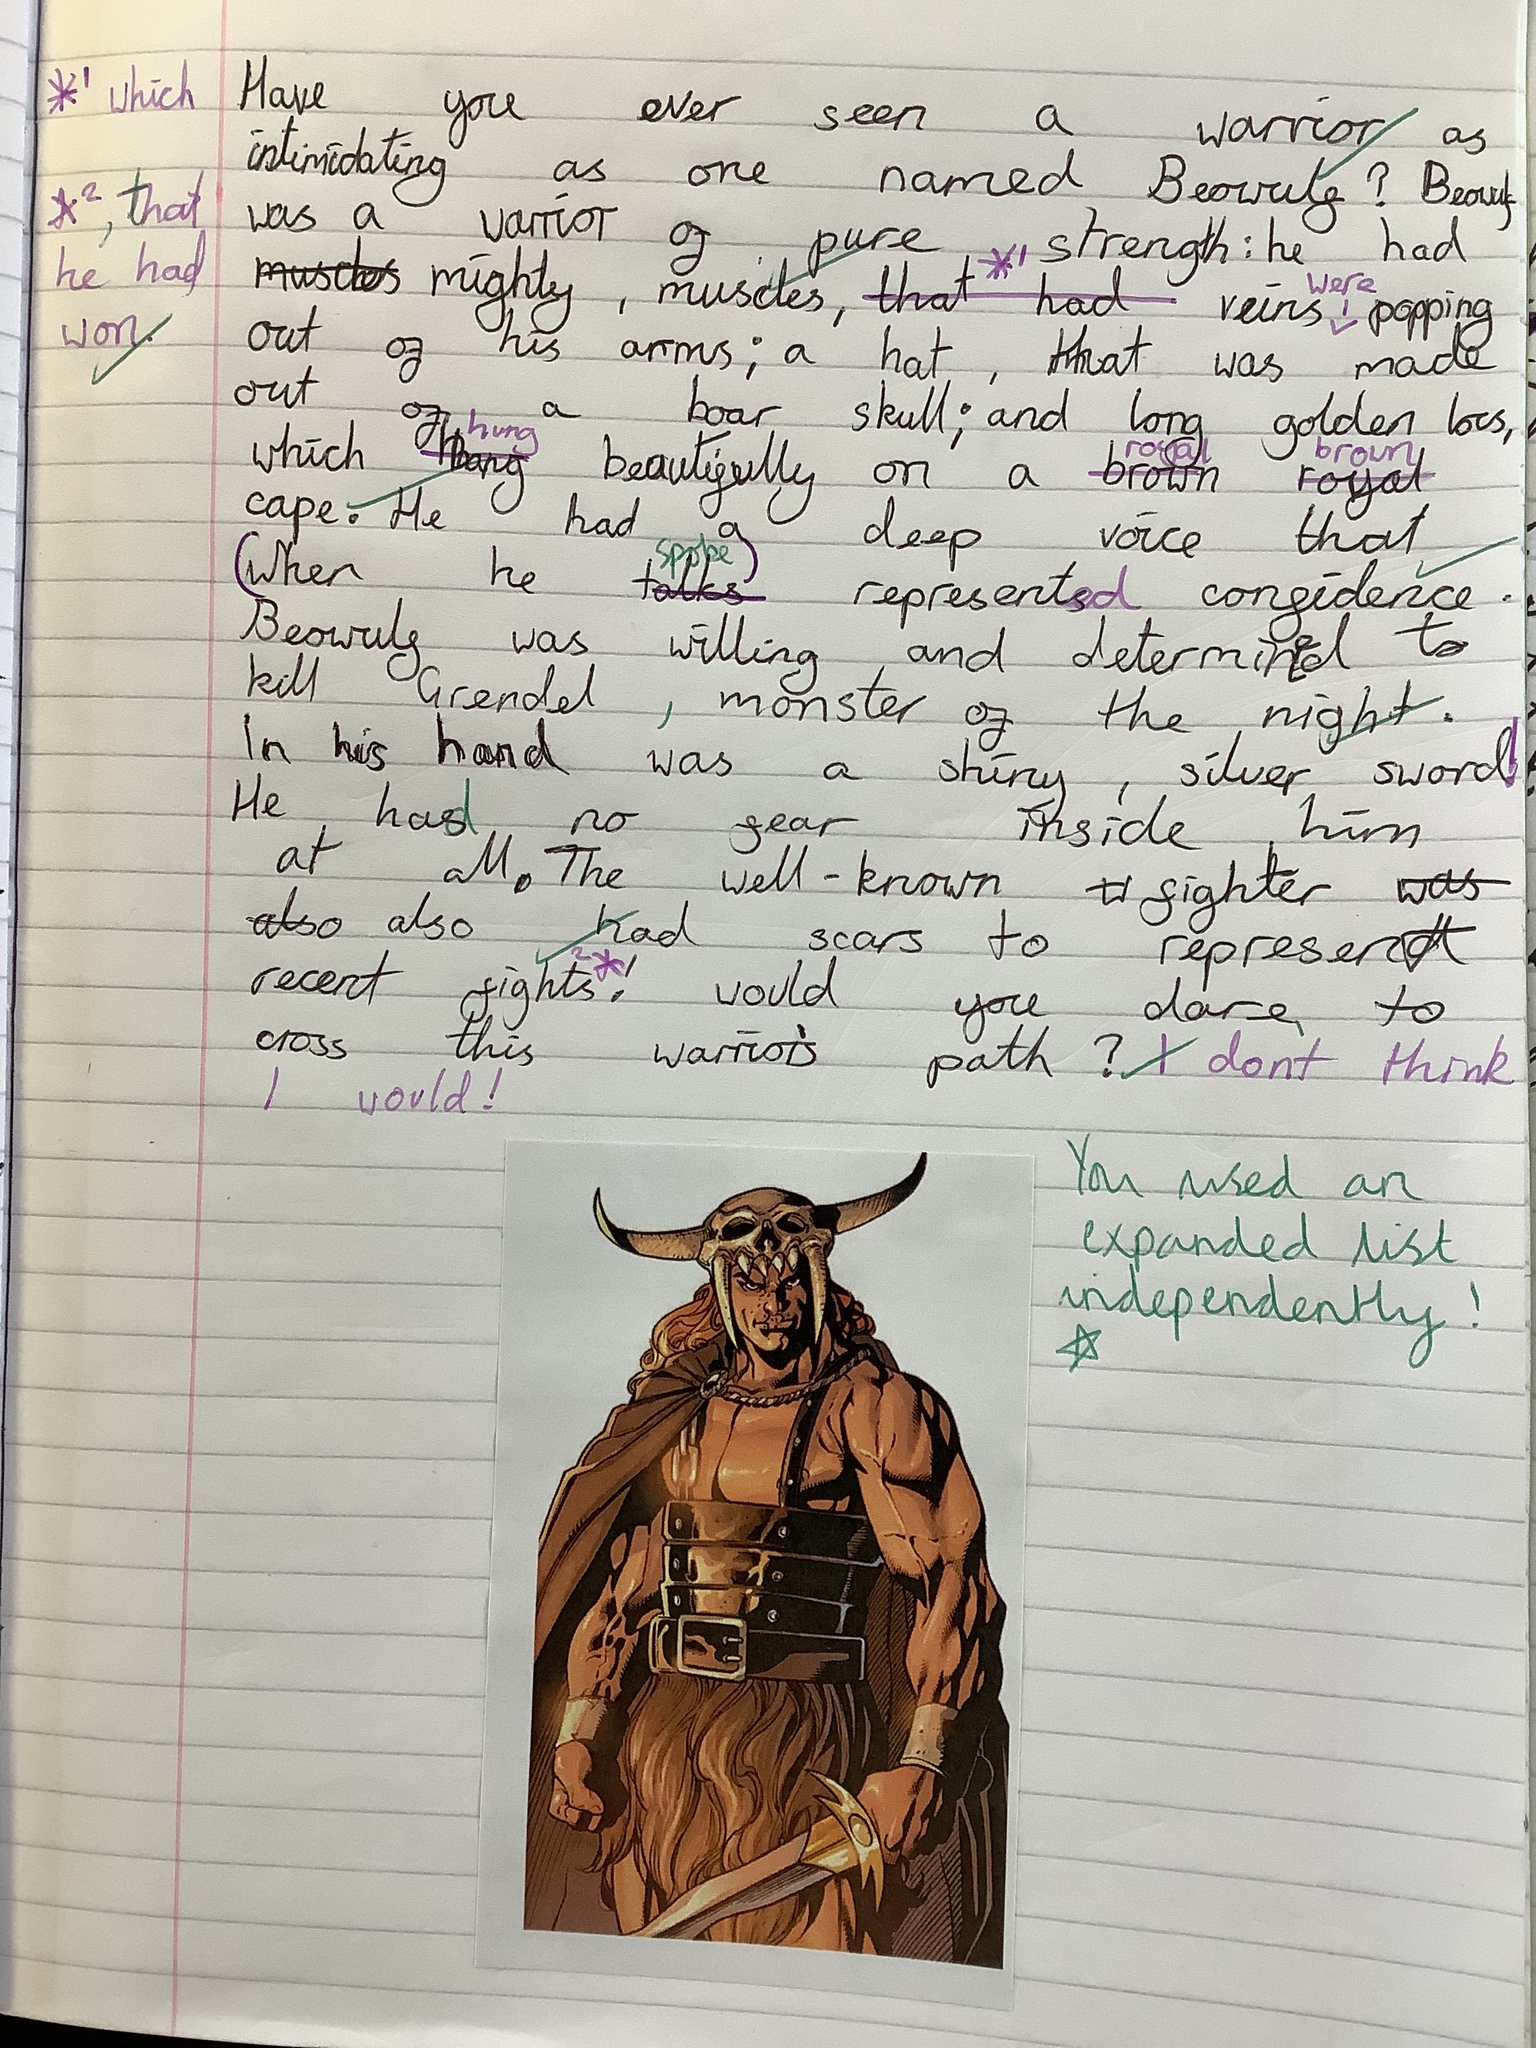 *1 which
*2, that
he had
won.
Have you ever seen a warrior as
intimidating as one named Beowulf? Beowulf
was a warrior of pure strength: he had
muscles mighty, muscles, that *1 had veins were popping
out of his arms; a hat, that was made
out of a boar skull; and long golden locs,
which hang hung beautifully on a brown royal royal brown
cape. He had a deep voice that
(when he talks spoke) represented confidence.
Beowulf was willing and determined to
kill Grendel, monster of the night.
In his hand was a shiny, silver sword!
He had no fear inside him
at all. The well-known fighter was
also also had scars to represent
recent fights 2*! would you dare, to
cross this warrior's path? I dont think
I would!
You used an
expanded list
independently!